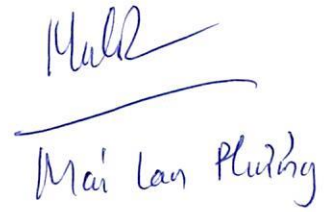 Mai Lan Phương